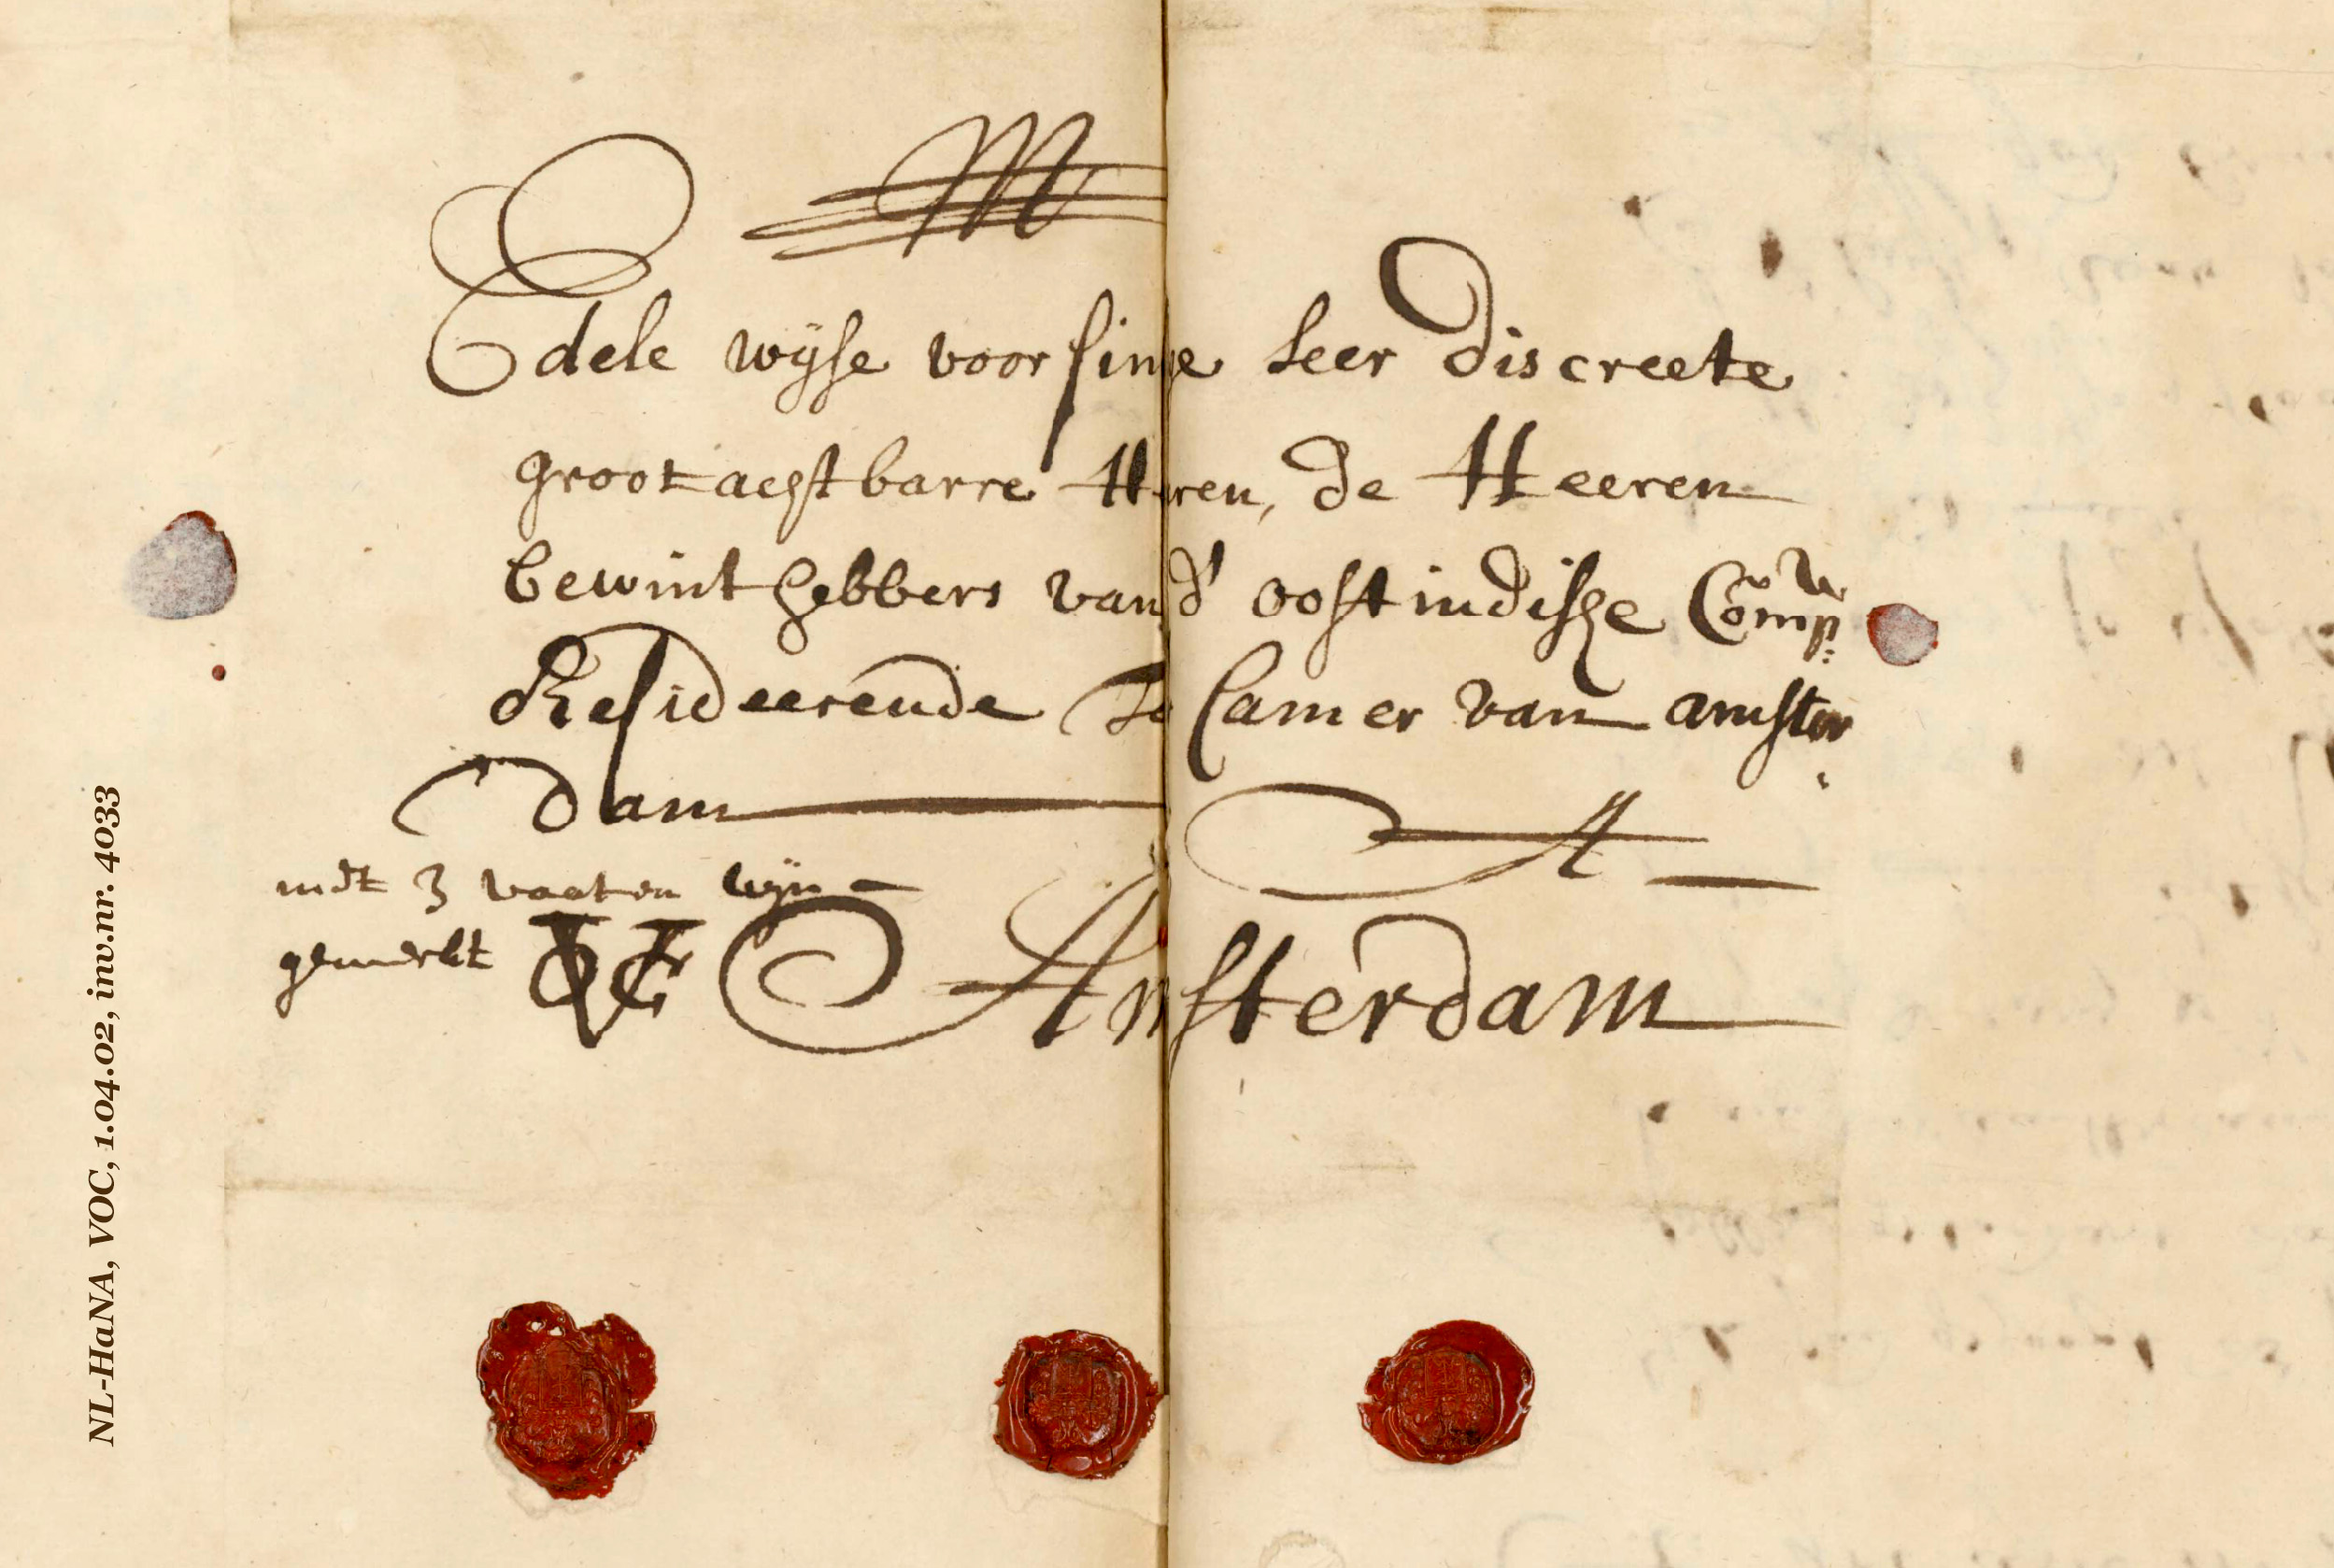 M
Edele wijse voorsinge seer discreete
grootachtbarre Heren, de Heeren
bewinthebbers vand' oostindische Comp:
Resideerende te Camer van amster
dam
A
met 3 vaaten wijn
gemerkt VOC
Amsterdam
NL-HaNA, VOC, 1.04.02, inv.nr. 4033